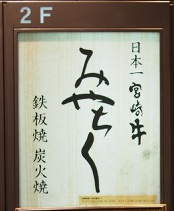 2F
日本一宮崎牛
みやちく
鉄板焼 炭火焼